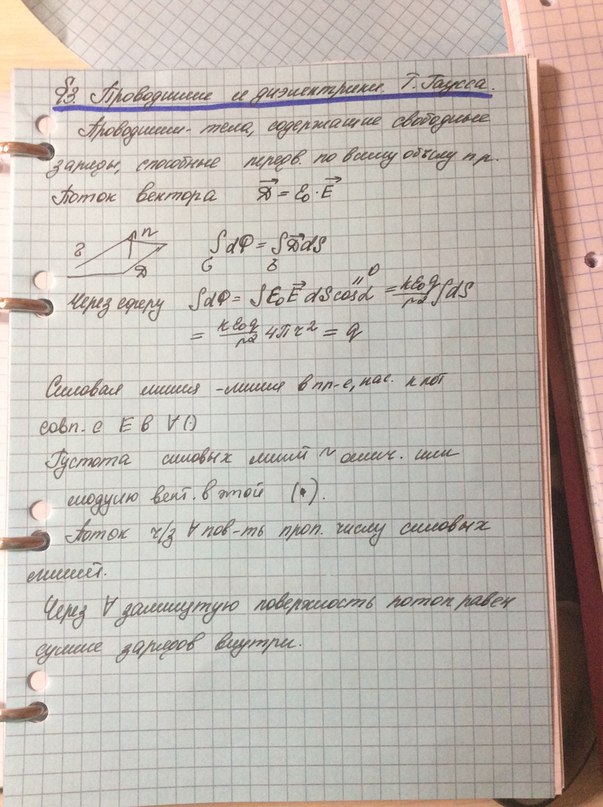 §3. Проводники и диэлектрики. Т. Гаусса.
Проводники - тела, содержащие свободные
заряды, способные передв. по всему объёму пр.
Поток вектора D⃗ = ε₀·E⃗
n
D
∫dΦ = ∫D⃗dS
Через сферу ∫dΦ = ∫ε₀E⃗ dS cosα = kε₀q/r² ∫dS
0
= kε₀q/r² 4πr² = q
Силовая линия - линия в пр-е, кас. к кот
совп. с E в ∀(·)
Густота силовых линий ~ или
модулю вект. в этой (·).
Поток ч/з ∀ пов-ть проп. числу силовых
линий.
Через ∀ замкнутую поверхность поток равен
сумме зарядов внутри.